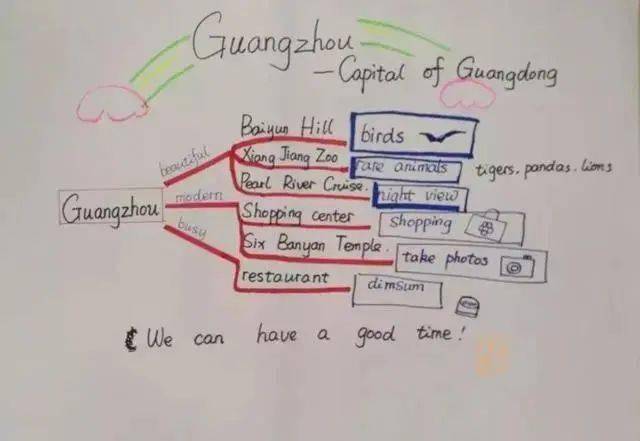 Guangzhou
— Capital of Guangdong
Baiyun Hill birds
beautiful Xiang Jiang Zoo rare animals tigers. pandas. lions
Pearl River Cruise. night view
modern
Guangzhou Shopping center shopping
busy
Six Banyan Temple. take photos
restaurant dimsum
We can have a good time!